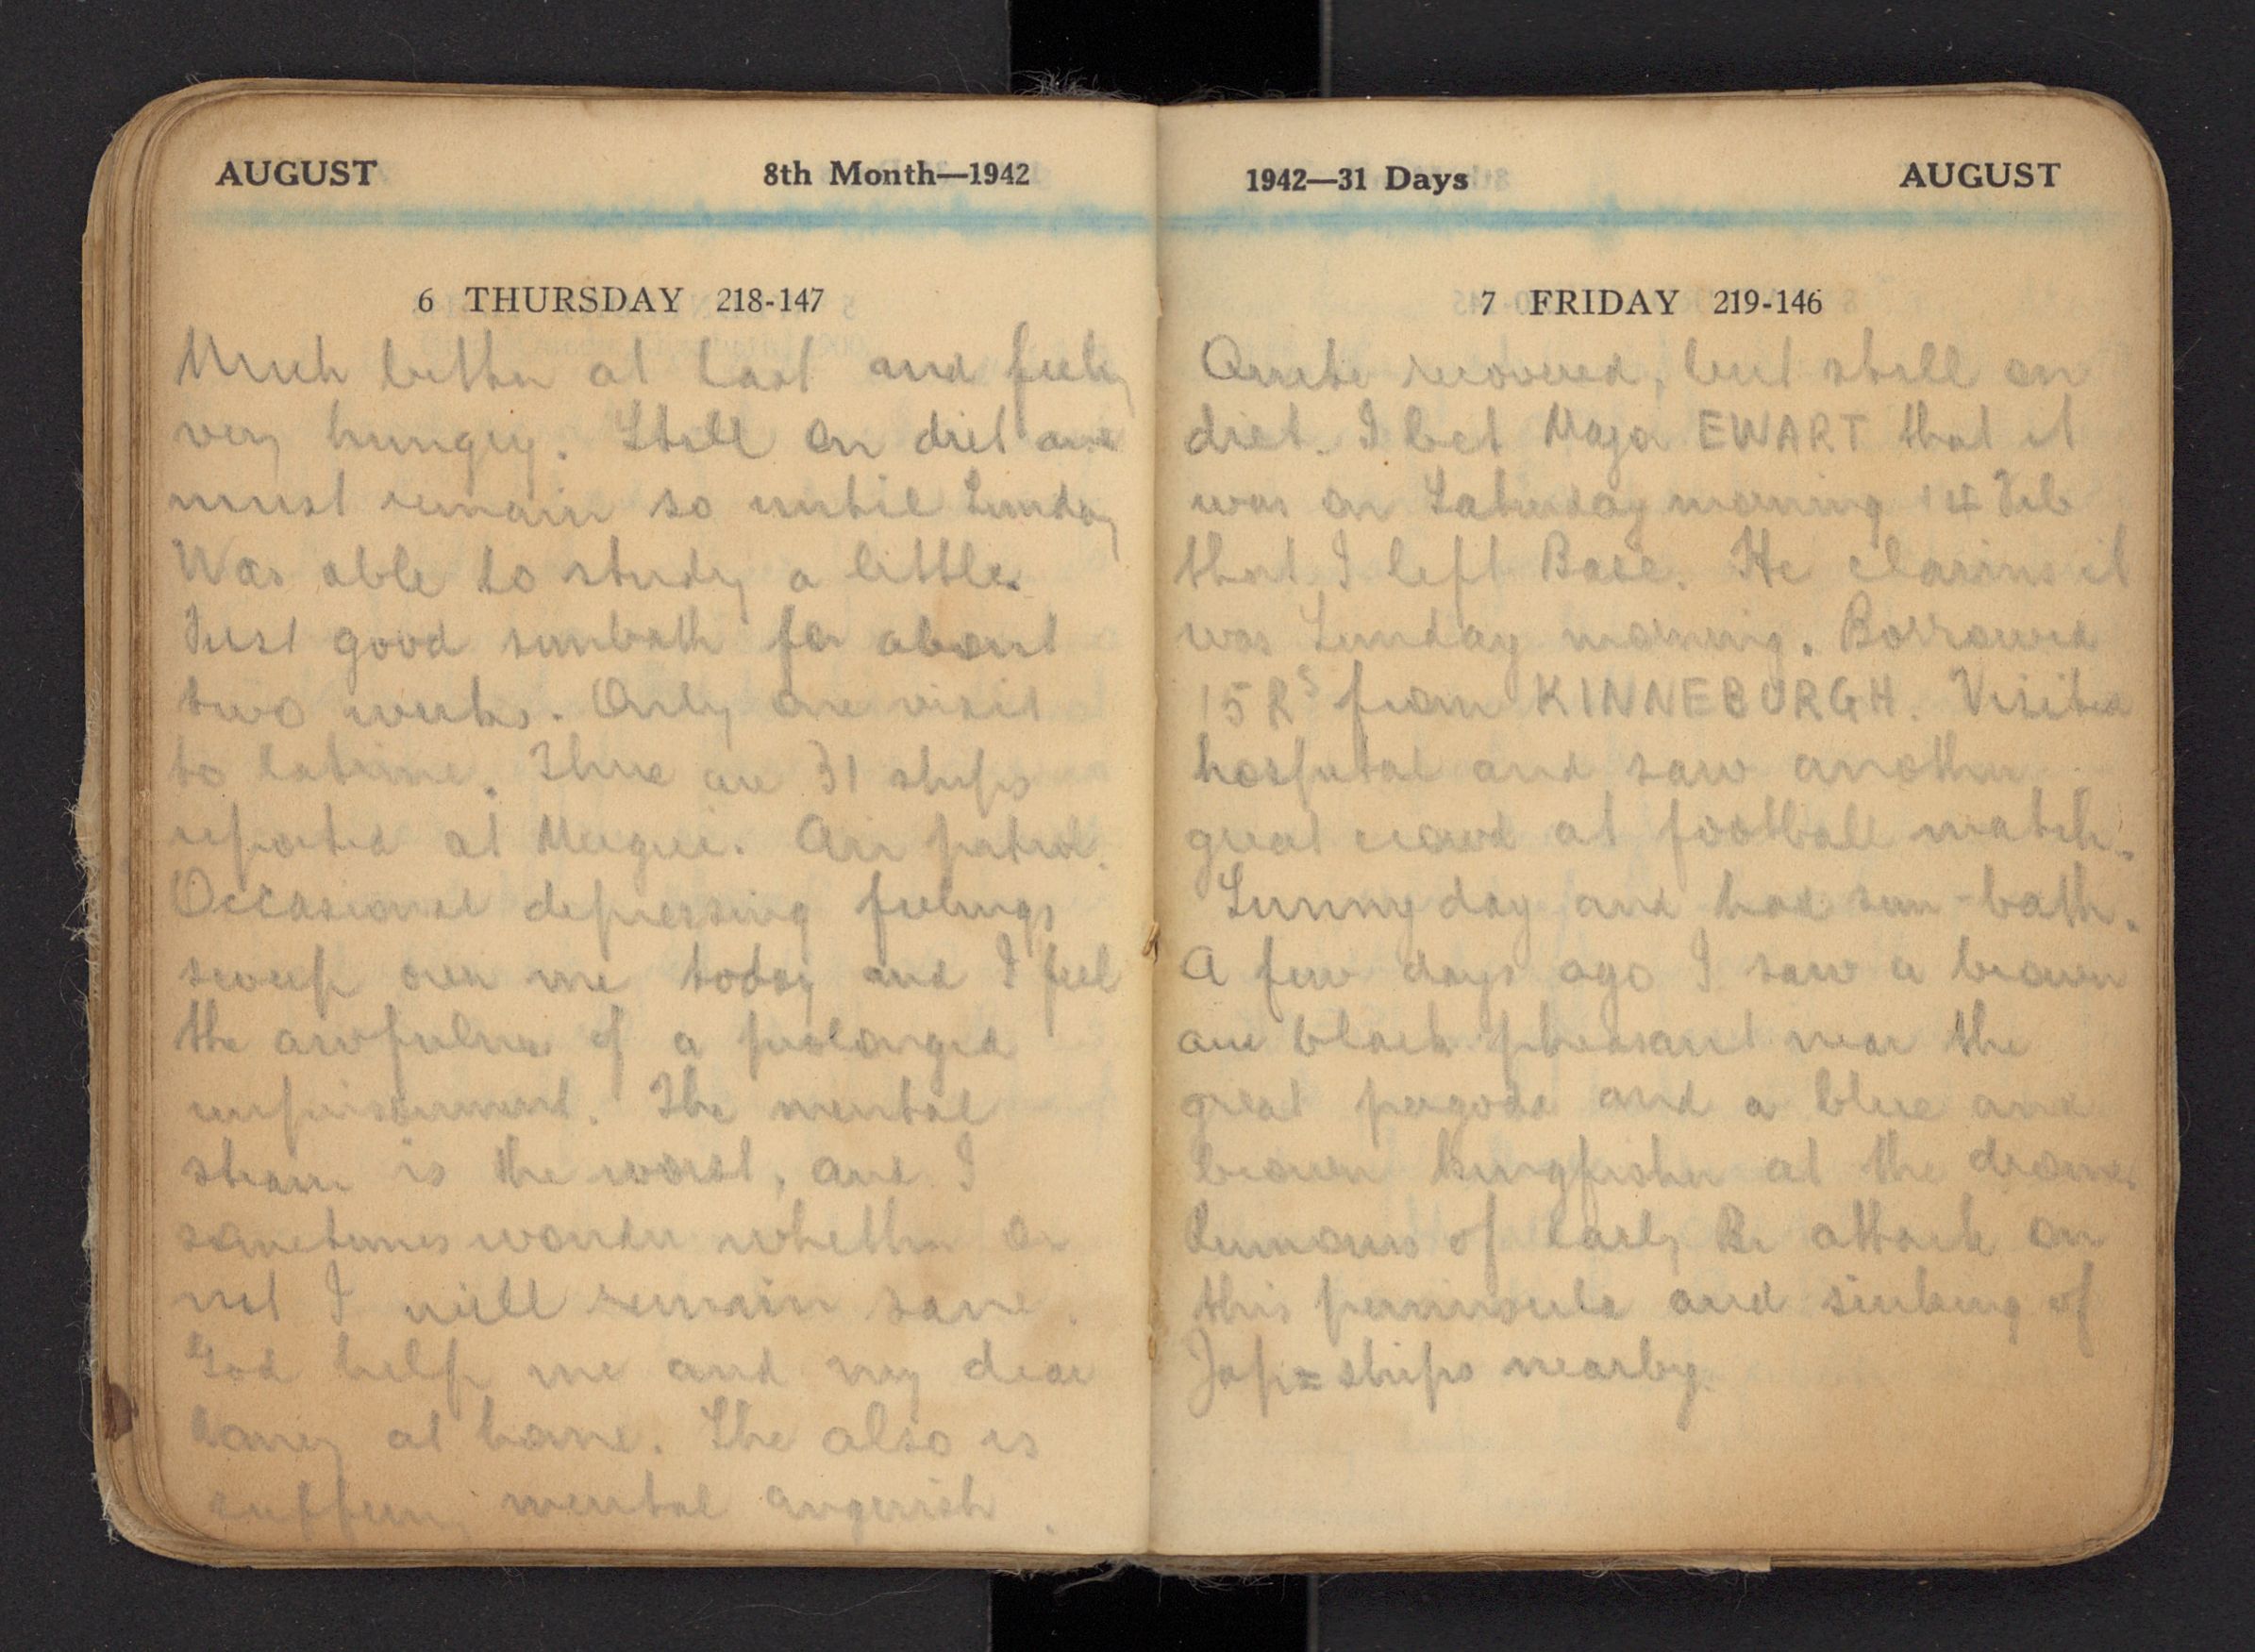 AUGUST 8th Month—1942
6 THURSDAY 218-147
Much better at last and feeling
very hungry. Still on diet and
must remain so until Sunday
Was able to study a little.
First good sunbath for about
two weeks. Only one visit
to latrine. There are 31 ships
reported at Mergui. Air patrol.
Occasional depressing feelings
sweep over me today and I feel
the awfulness of a prolonged
imprisonment. The mental
strain is the worst, and I
sometimes wonder whether or
not I will remain sane.
God help me and my dear
at home. She also is
suffering mental anguish.
1942—31 Days AUGUST
7 FRIDAY 219-146
Quite recovered, but still on
diet. I bet Major EWART that it
was on Saturday morning 14 Feb
that I left Base. He claims it
was Sunday morning. Borrowed
15 Rs from KINNEBURGH. Visited
hospital and saw another
great crowd at football match.
Sunny day and had sun-bath.
A few days ago I saw a brown
and black pheasant near the
great pagoda and a blue and
brown kingfisher at the drome.
Rumours of early Br attack on
this peninsula and sinking of
Jap= ships nearby.